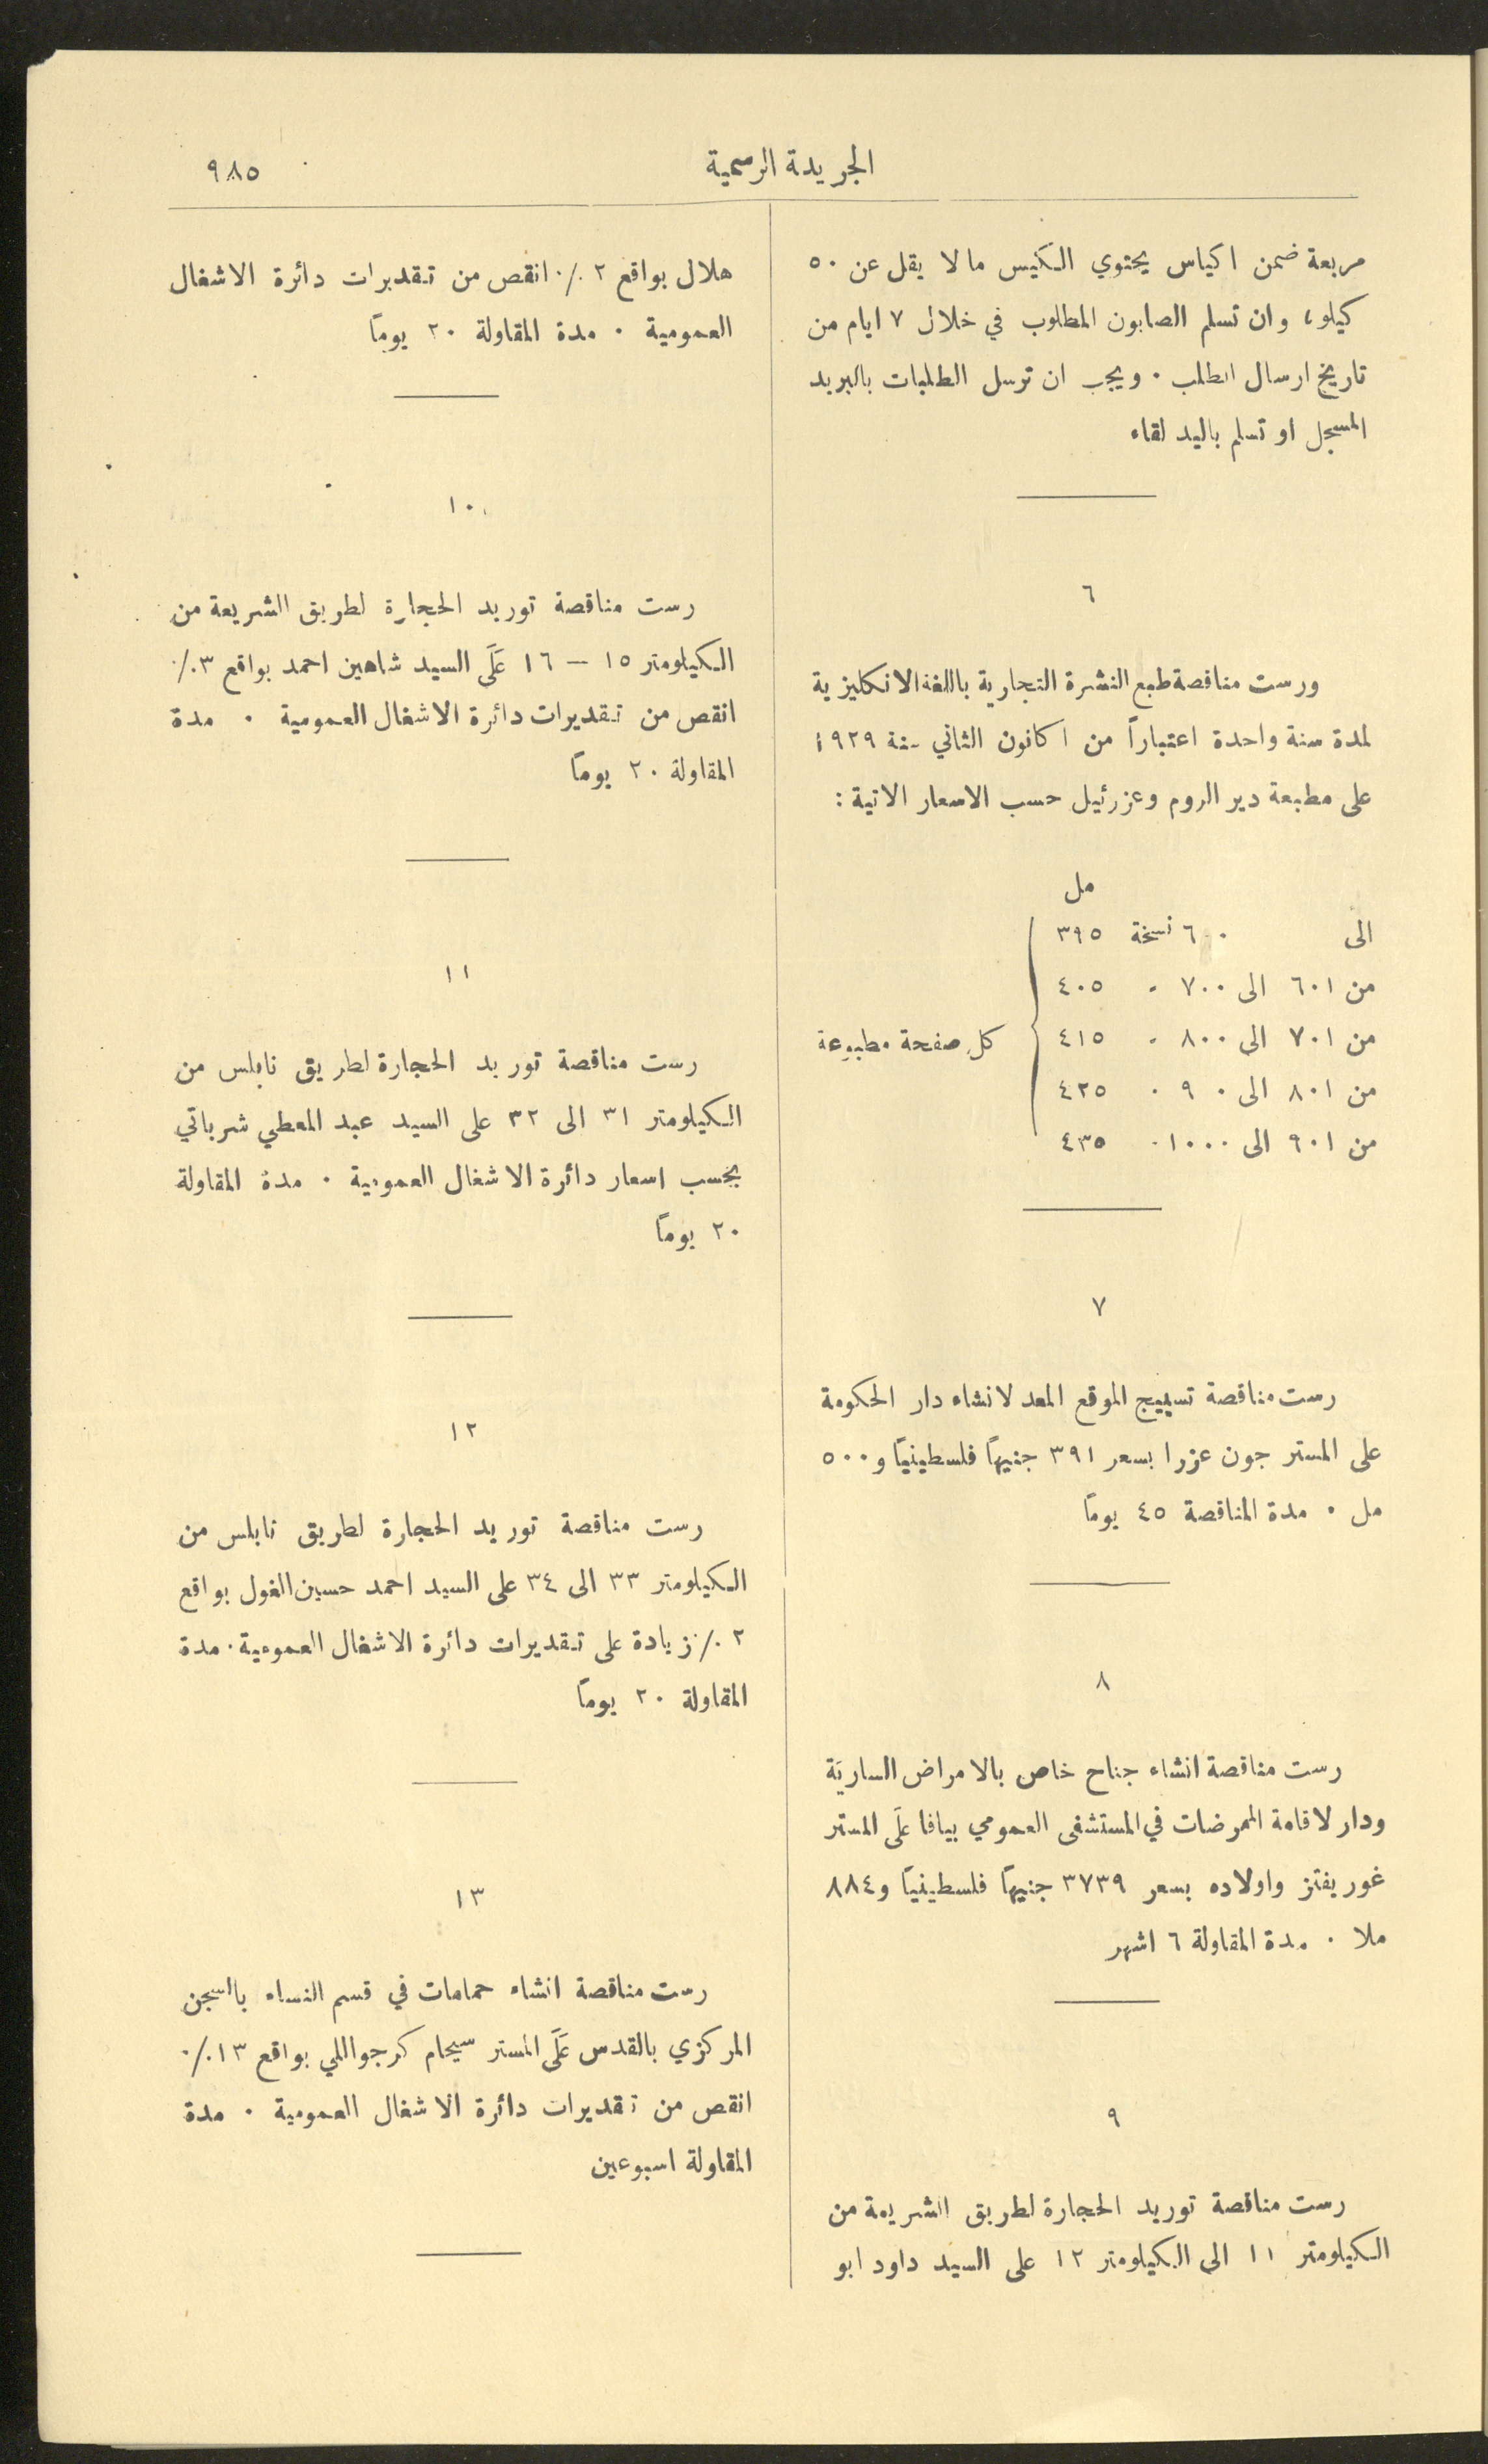 الجريدة الرسمية
٩٨٥
مربعة ضمن اكياس يحتوي الكيس ما لا يقل عن ٥٠
كيلو، وان تسلم الصابون المطلوب في خلال ٧ ايام من
تاريخ ارسال الطلب . ويجب ان ترسل الطلبات بالبريد
المسجل او تسلم باليد لقاء
٦
ورست مناقصة طبع النشرة التجارية باللغة الانكليزية
لمدة سنة واحدة اعتباراً من ١ كانون الثاني سنة ١٩٢٩
على مطبعة دير الروم وعزرئيل حسب الاسعار الاتية :
مل
الى ٦٠٠ نسخة ٣٩٥
من ٦٠١ الى ٧٠٠ " ٤٠٥
من ٧٠١ الى ٨٠٠ " ٤١٥ كل صفحة مطبوعة
من ٨٠١ الى ٩٠٠ " ٤٢٥
من ٩٠١ الى ١٠٠٠ " ٤٣٥
٧
رست مناقصة تسييج الموقع المعد لانشاء دار الحكومة
على المستر جون عزرا بسعر ٣٩١ جنيهاً فلسطينياً و٥٠٠
مل . مدة المناقصة ٤٥ يوماً
٨
رست مناقصة انشاء جناح خاص بالامراض السارية
ودار لاقامة الممرضات في المستشفى العمومي بيافا علَى المستر
غوريفتز واولاده بسعر ٣٧٣٩ جنيهاً فلسطينياً و٨٨٤
ملا . مدة المقاولة ٦ اشهر
٩
رست مناقصة توريد الحجارة لطريق الشريعة من
الكيلومتر ١١ الى الكيلومتر ١٢ على السيد داود ابو
هلال بواقع ٢ ٪ انقص من تقديرات دائرة الاشغال
العمومية . مدة المقاولة ٢٠ يوماً
١٠
رست مناقصة توريد الحجارة لطريق الشريعة من
الكيلومتر ١٥ – ١٦ عَلَى السيد شاهين احمد بواقع ٣ ٪
انقص من تقديرات دائرة الاشغال العمومية . مدة
المقاولة ٢٠ يوماً
١١
رست مناقصة توريد الحجارة لطريق نابلس من
الكيلومتر ٣١ الى ٣٢ على السيد عبد المعطي شرباتي
بحسب اسعار دائرة الاشغال العمومية . مدة المقاولة
٢٠ يوماً
١٢
رست مناقصة توريد الحجارة لطريق نابلس من
الكيلومتر ٣٣ الى ٣٤ على السيد احمد حسين الغول بواقع
٢ ٪ زيادة على تقديرات دائرة الاشغال العمومية . مدة
المقاولة ٢٠ يوماً
١٣
رست مناقصة انشاء حمامات في قسم النساء بالسجن
المركزي بالقدس عَلَى المستر سيحام كرجواللي بواقع ١٣ ٪
انقص من تقديرات دائرة الاشغال العمومية . مدة
المقاولة اسبوعين